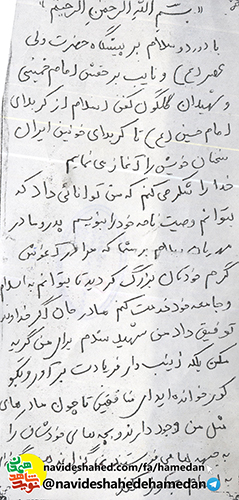 «بسم الله الرحمن الرحیم»
با درود و سلام بر پیشگاه حضرت ولی
عصر (عج) و نایب بر حقش امام خمینی
و شهیدان گلگون کفن اسلام از کربلای
امام حسین (ع) تا کربلای خونین ایران
سخنان خویش را آغاز می نمایم
خدا را شکر می کنم که بمن توانائی داد که
بتوانم وصیت نامه خود را بنویسم پدر و مادر
مهربانم سلام بر شما که مرا در
گرم خودتان بزرگ کردید تا بتوانم به اسلام
و جامعه خود خدمت کنم مادر جان اگر خداوند
توفیق داد من شهید شدم برای من گریه
مکن بلکه زینب وار فریادت بر آور و بگو
کور خوانده اید ای منافقین تا چون مادرهای
مثل من وجود دارند و بچه های خودشان را
به
navideshahed.com/fa/hamedan
@navideshahedehamedan